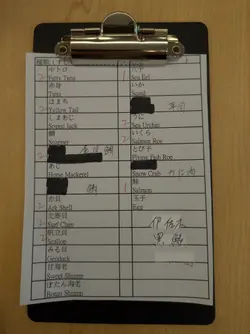 中トロ
2 Fatty Tuna
赤身
Tuna
はまち
2 Yellow Tail
しまあじ
Striped Jack
鯛
Snapper
金目鯛
あじ
Horse Mackerel
鯖
赤貝
2 Ark Shell
北寄貝
1 Surf Clam
帆立貝
2 Scallop
みる貝
Geoduck
甘海老
Sweet Shrimp
ぼたん海老
Sweet Shrimp
穴子
Sea Eel
いか
Squid
うに
2 Sea Urchin
いくら
2 Salmon Roe
とび子
Flying Fish Roe
Snow Crab
かに肉
鮭
1 Salmon
玉子
Egg
伊佐木
黒鯥